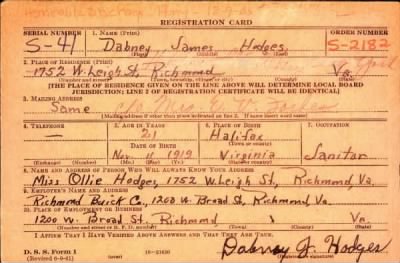 REGISTRATION CARD
SERIAL NUMBER 1. NAME (Print) ORDER NUMBER
S-41 Dabney James Hodges S-2182
(First) (Middle) (Last)
2. PLACE OF RESIDENCE (Print)
1752 W. Leigh St, Richmond Va.
(Number and street) (Town, township, village, or city) (County) (State)
[THE PLACE OF RESIDENCE GIVEN ON THE LINE ABOVE WILL DETERMINE LOCAL BOARD
JURISDICTION; LINE 2 OF REGISTRATION CERTIFICATE WILL BE IDENTICAL]
3. MAILING ADDRESS
Same
[Mailing address if other than place indicated on line 2. If same insert word same]
4. TELEPHONE 5. AGE IN YEARS 6. PLACE OF BIRTH 7. OCCUPATION
— 21 Halifax
DATE OF BIRTH
Nov. 11, 1919 Virginia Janitor
(Exchange) (Number) (Mo.) (Day) (Yr.) (State or country)
8. NAME AND ADDRESS OF PERSON WHO WILL ALWAYS KNOW YOUR ADDRESS
Miss. Ollie Hodges, 1752 W. Leigh St, Richmond, Va.
9. EMPLOYER'S NAME AND ADDRESS
Richmond Buick Co., 1200 W. Broad St, Richmond, Va.
10. PLACE OF EMPLOYMENT OR BUSINESS
1200 W. Broad St, Richmond Va.
(Number and street or R. F. D. number) (Town) (County) (State)
I AFFIRM THAT I HAVE VERIFIED ABOVE ANSWERS AND THAT THEY ARE TRUE.
D. S. S. Form 1
(Revised 6-9-41) 16—21630
Dabney J. Hodges